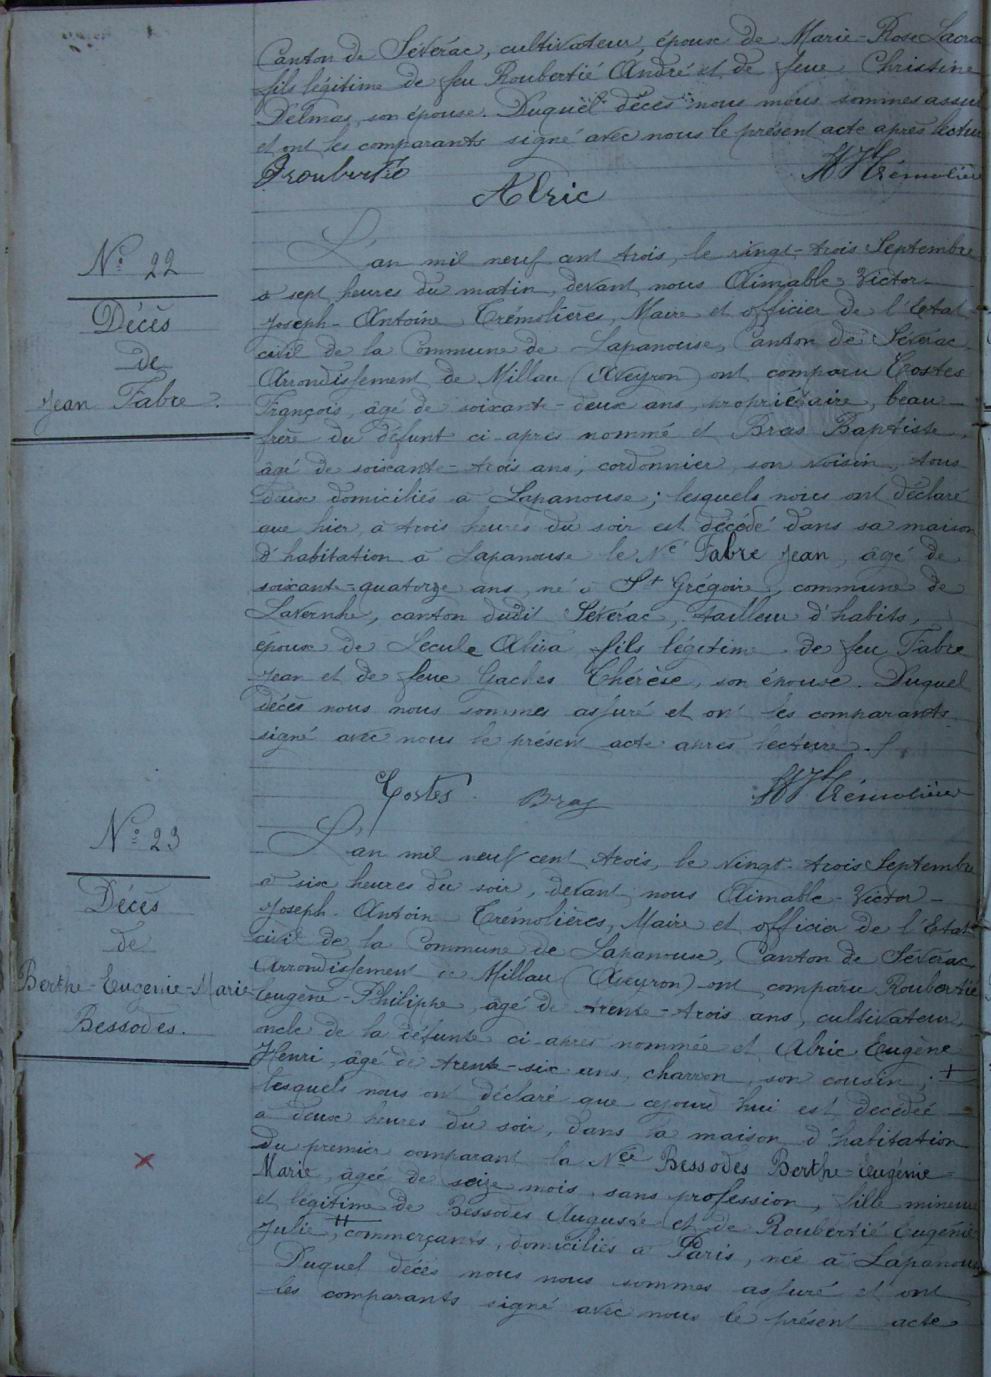 Canton de Sévérac, cultivateur, époux de Marie-Rose Lacro
fils légitime de feu Roubertié André et de feue Christine
Delmas, son épouse. Duquel décès nous nous sommes assu
et ont les comparants signé avec nous le présent acte après lectur
Roubertié
Trémolière
Alric
L'an mil neuf cent trois, le vingt-trois Septembre
N° 22
Décès
de
Jean Fabre.
à sept heures du matin, devant nous Aimable-Victor-
Joseph-Antoine Trémolières, Maire et officier de l'Etat
civil de la Commune de Lapanouse, Canton de Sévérac
Arrondissement de Millau (Aveyron) ont comparu Costes
François, âgé de soixante-deux ans, propriétaire, beau-
frère du défunt ci-après nommé et Bras Baptiste,
âgé de soixante-trois ans, cordonnier, son voisin, tous
deux domiciliés à Lapanouse; lesquels nous ont déclaré
que hier, à trois heures du soir est décédé dans sa maison
d'habitation à Lapanouse le Né Fabre Jean, âgé de
soixant-quatorze ans, né à St Grégoire, commune de
Lavernhe, canton dudit Sévérac, tailleur d'habits,
époux de fils légitime de feu Fabre
Jean et de feue Gaches Thérèse, son épouse. Duquel
décès nous nous sommes assuré et ont les comparants
signé avec nous le présent acte après lecture.
Costes Bras Trémolière
N° 23
Décès
de
Berthe-Eugénie-Marie
Bessodes.
L'an mil neuf cent trois, le vingt-trois Septembre
à six heures du soir, devant nous Aimable-Victor-
Joseph-Antoin Trémolières, Maire et officier de l'Etat
civil de la Commune de Lapanouse, Canton de Sévérac
Arrondissement de Millau (Aveyron) ont comparu Roubertié
Eugène-Philippe, âgé de trente-trois ans, cultivateur,
oncle de la défunte ci-après nommée et Alric Eugène
Henri, âgé de trente-six ans, charron, son cousin; +
lesquels nous ont déclaré que cejourd'hui est décédée
à deux heures du soir, dans la maison d'habitation
du premier comparant la Née Bessodes Berthe-Eugénie-
Marie, âgée de seize mois, sans profession, fille mineure
et légitime de Bessodes Auguste et de Roubertié Eugénie
Julie, ++ commerçants, domiciliés à Paris, née à Lapanouse
Duquel décès nous nous sommes assuré et ont
les comparants signé avec nous le présent acte